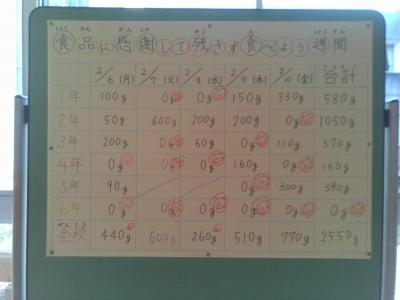 食品に感謝して残さず食べよう週間
2/6(月) 2/7(火) 2/8(水) 2/9(木) 2/10(金) 合計
1年 100g 0g 0g 150g 330g 580g
2年 50g 600g 200g 200g 0g 1050g
3年 200g 0g 60g 0g 110g 370g
4年 0g 0g 0g 160g 0g 160g
5年 90g 0g 300g 390g
6年 0g 0g 0g 0g 0g 0g
全校 440g 600g 260g 510g 2550g